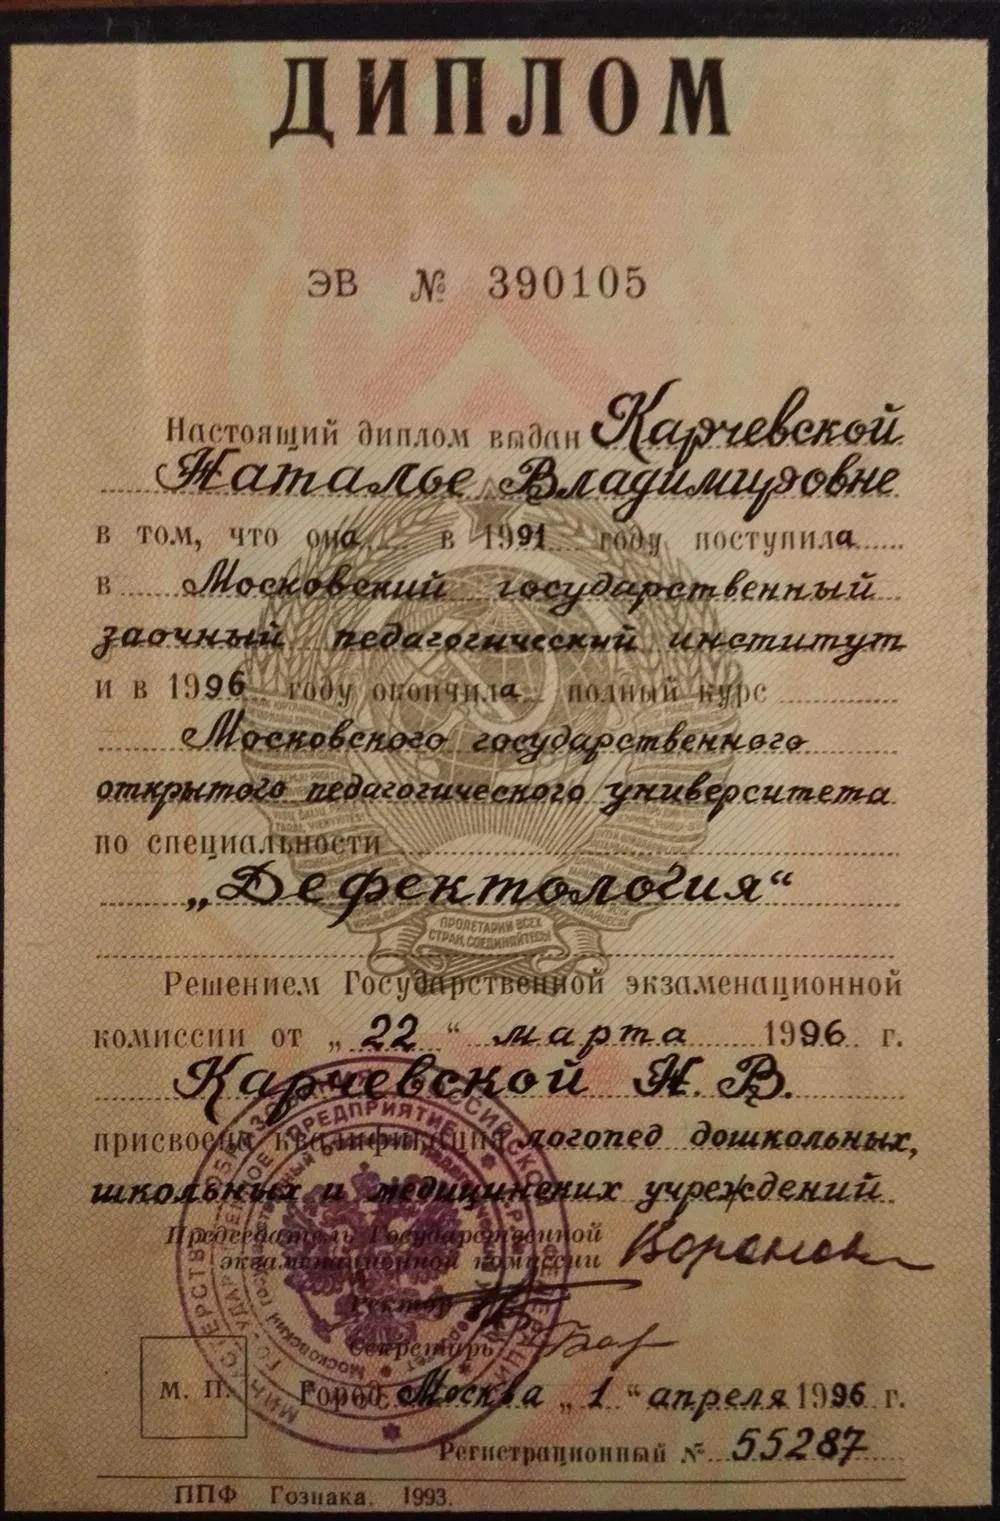 ДИПЛОМ
ЭВ № 390105
Настоящий диплом выдан Карчевской
Наталье Владимировне
в том, что она в 1991 году поступила
в Московский государственный
заочный педагогический институт
и в 1996 году окончила полный курс
Московского государственного
открытого педагогического университета
по специальности
„Дефектология“
ПРОЛЕТАРИИ ВСЕХ
СТРАН, СОЕДИНЯЙТЕСЬ!
Решением Государственной экзаменационной
комиссии от „22“ марта 1996 г.
Карчевской Н. В.
присвоена квалификация логопед дошкольных,
школьных и медицинских учреждений
Председатель Государственной
экзаменационной комиссии
Ректор
Секретарь
М. П. Город Москва „1“ апреля 1996 г.
Регистрационный № 55287
ППФ Гознака. 1993.